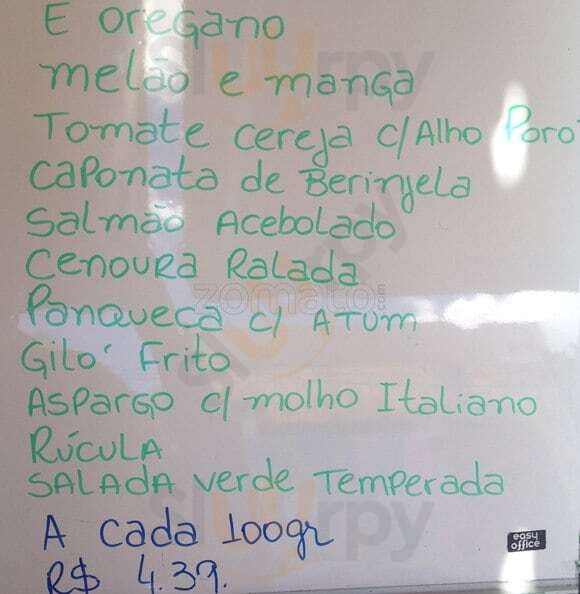 E oregano
melão e manga
Tomate cereja c/Alho Poró
caponata de Berinjela
Salmão Acebolado
Cenoura Ralada
Panqueca c/ ATUM
Giló Frito
ASPARGO c/ molho Italiano
RÚCULA
SALADA verde Temperada
A cada 100gr
R$ 4.39.
easy office
zomato.com
slurrpy